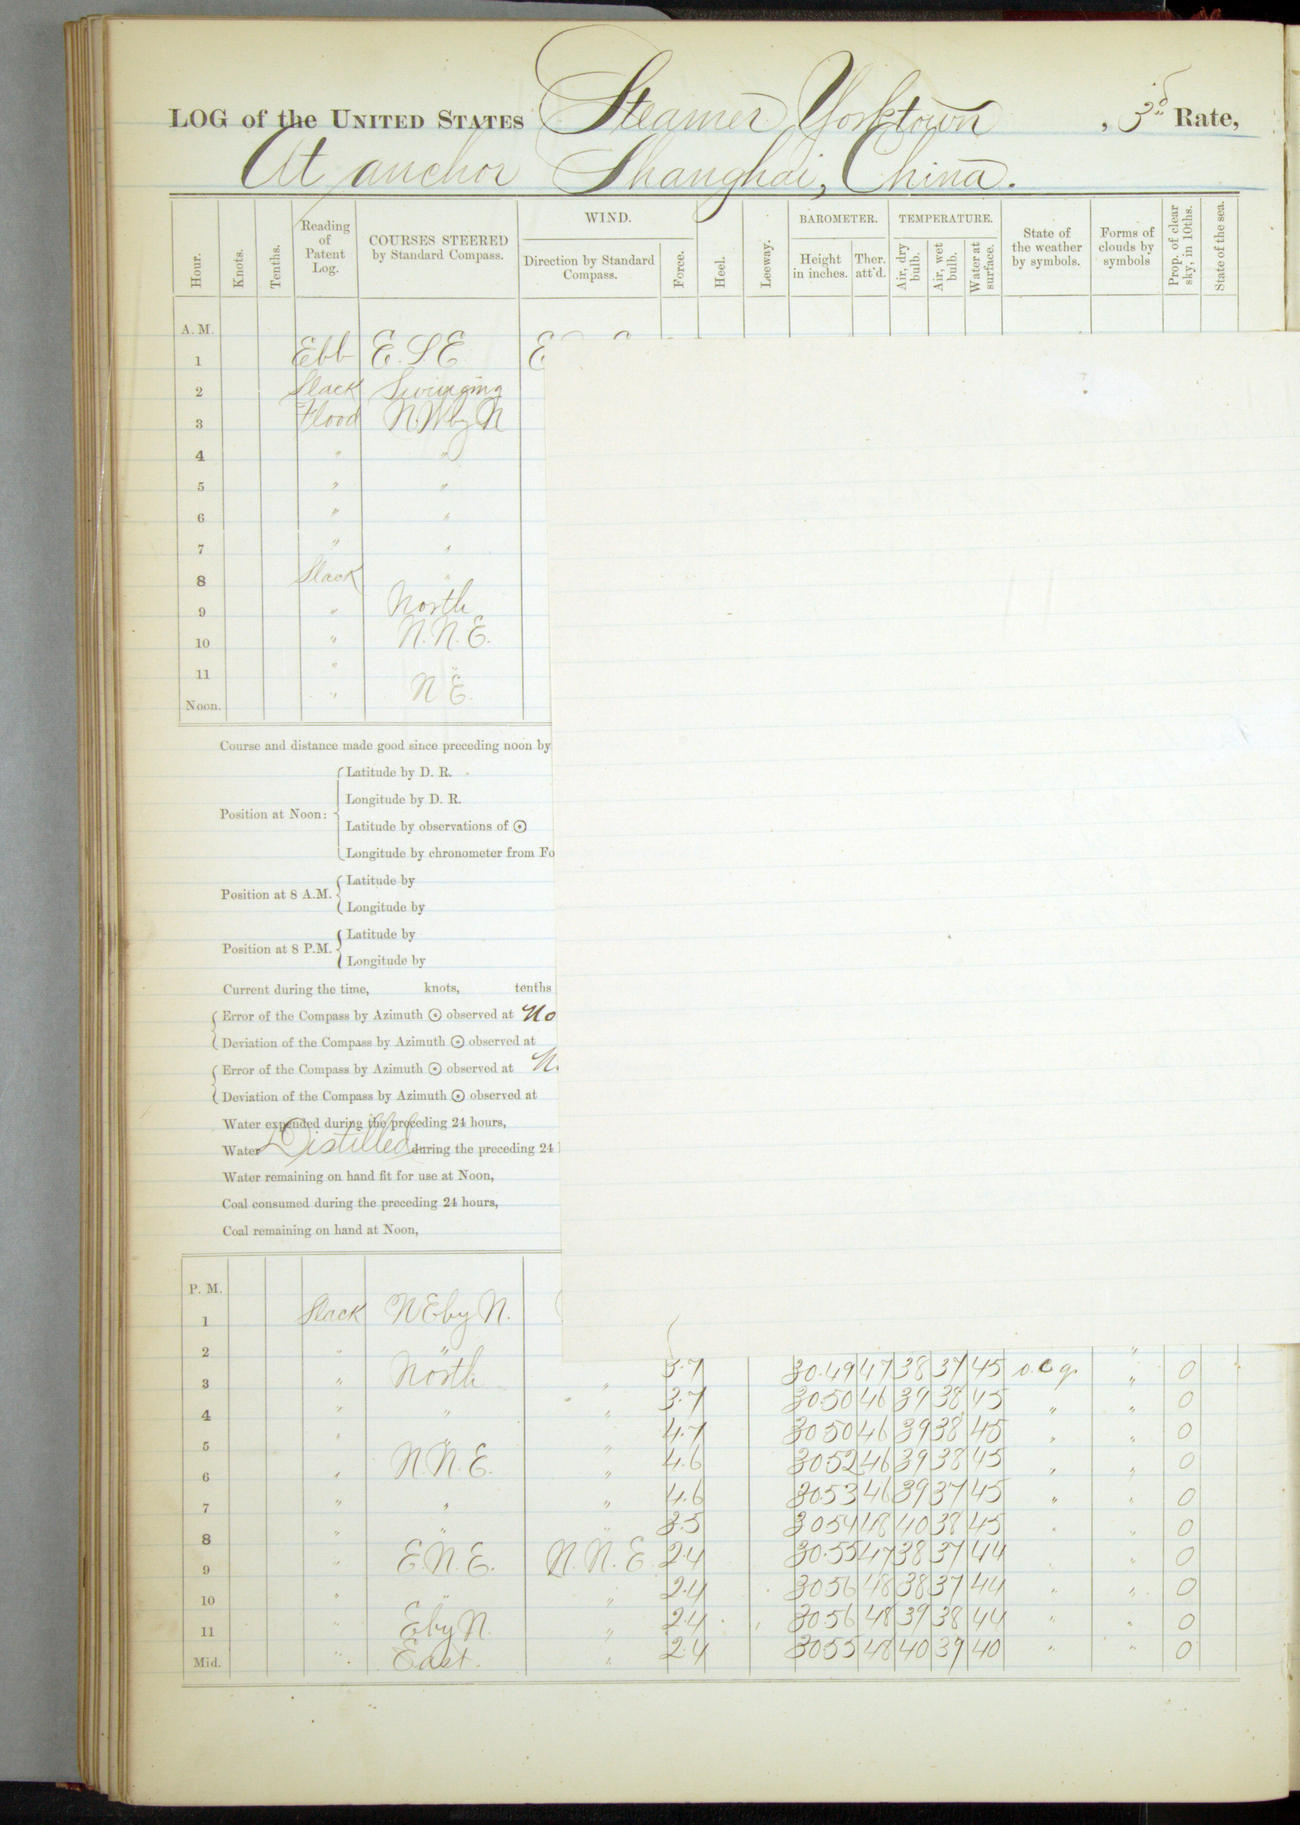 LOG of the UNITED STATES Steamer Yorktown, 3d Rate,
At anchor Shanghai, China.
WIND. BAROMETER. TEMPERATURE.
Hour. Knots. Tenths. Reading of Patent Log. COURSES STEERED by Standard Compass. Direction by Standard Compass. Force. Heel. Leeway. Height in inches. Ther. att'd. Air, dry bulb. Air, wet bulb. Water at surface. State of the weather by symbols. Forms of clouds by symbols Prop. of clear sky, in 10ths. State of the sea.
A. M.
1 Ebb E.S.E. E
2 Slack Swinging
3 Flood N.W by N
4 " "
5 " "
6 " "
7 " "
8 Slack "
9 " North
10 " N.N.E.
11 " "
Noon. " N E.
Course and distance made good since preceding noon by
Position at Noon:
Latitude by D. R.
Longitude by D. R.
Latitude by observations of ⊙
Longitude by chronometer from Fo
Position at 8 A.M.
Latitude by
Longitude by
Position at 8 P.M.
Latitude by
Longitude by
Current during the time, knots, tenths
Error of the Compass by Azimuth ⊙ observed at No
Deviation of the Compass by Azimuth ⊙ observed at
Error of the Compass by Azimuth ⊙ observed at N
Deviation of the Compass by Azimuth ⊙ observed at
Water expended during the preceding 24 hours,
Water Distilled during the preceding 24
Water remaining on hand fit for use at Noon,
Coal consumed during the preceding 24 hours,
Coal remaining on hand at Noon,
P. M.
1 Slack NE by N.
2 " " "
3 " North " 3.7 30.49 47 38 37 45 o.c.g. " 0
4 " " " 3.7 30.50 46 39 38 45 " " 0
5 " " " 4.7 30 50 46 39 38 45 " " 0
6 " N.N.E. " 4.6 30 52 46 39 38 45 " " 0
7 " " " 4.6 30.53 46 39 37 45 " " 0
8 " " " 3.5 30 54 48 40 38 45 " " 0
9 " E.N.E. N.N.E 2.4 30.55 47 38 37 44 " " 0
10 " " " 2.4 30 56 48 38 37 44 " " 0
11 " E by N. " 2.4 30 56 48 39 38 44 " " 0
Mid. " East. " 2.4 30 55 48 40 39 40 " " 0